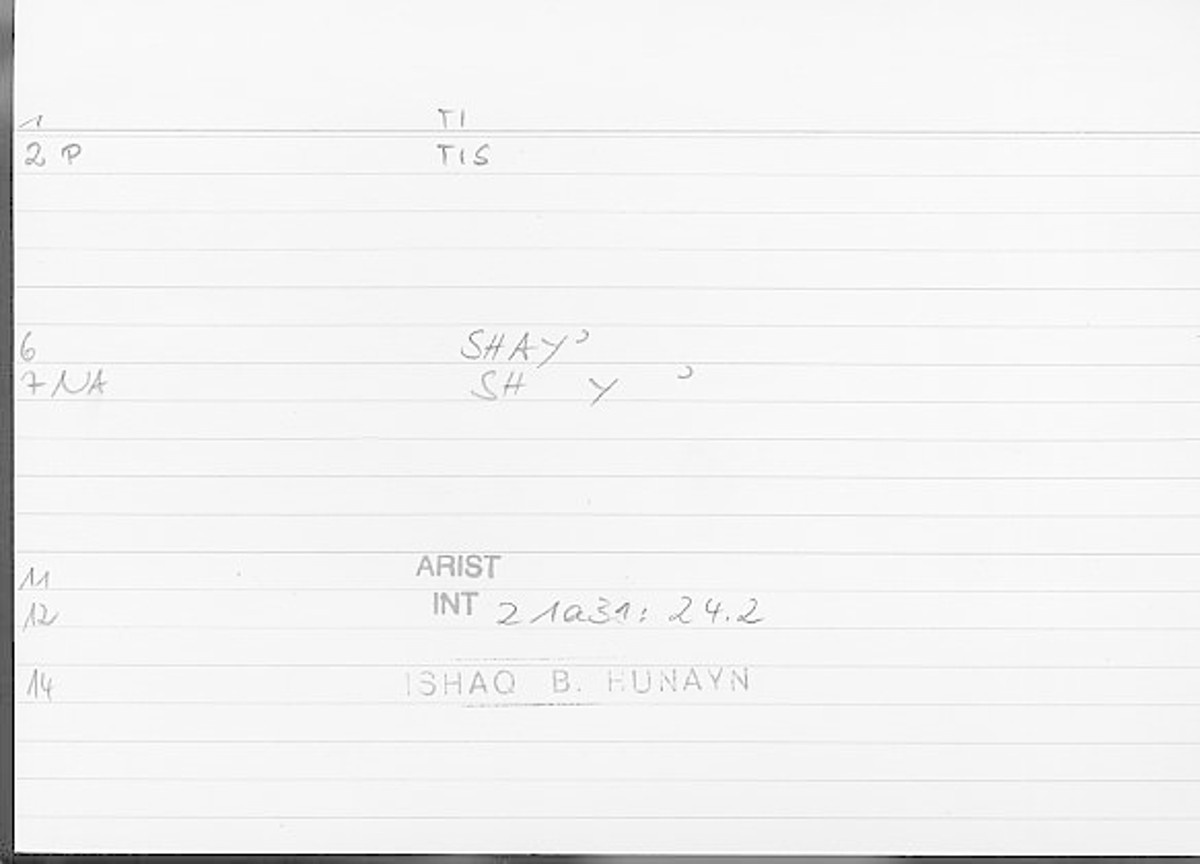 1 TI
2 P TIS
6 SHAY ʾ
7 NA SH Y ʾ
11 ARIST
12 INT 21a31: 24.2
14 ISHAQ B. HUNAYN